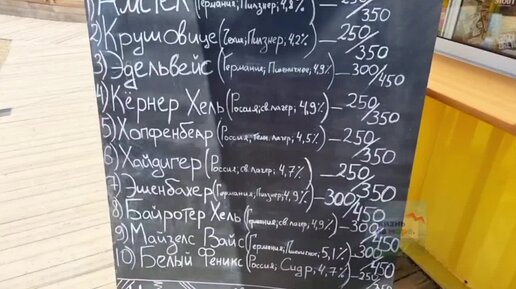 1) Амстел (Германия; Пилзнер, 4,8% – 250/350
2) Крушовице (Чехия; Пилзнер, 4,2% – 250/350
3) Эдельвейс (Германия; Пшеничное, 4,9%) – 300/450
4) Кёрнер Хель (Россия; св. лагер, 4,9%) – 250/350
5) Хопфенбеар (Россия; тёмн. лагер, 4,5%) – 250/350
6) Хайдигер (Россия; св. лагер, 4,7%) – 250/350
7) Эшенбахер (Германия; Пилзнер, 4,9%) – 300/450
8) Байротер Хель (Германия; св. лагер, 4,9%) – 300/450
9) Майзелс Вайс (Германия; Пшеничное, 5,1%) – 300/450
10) Белый Феникс (Россия; Сидр, 4,7%) – 250